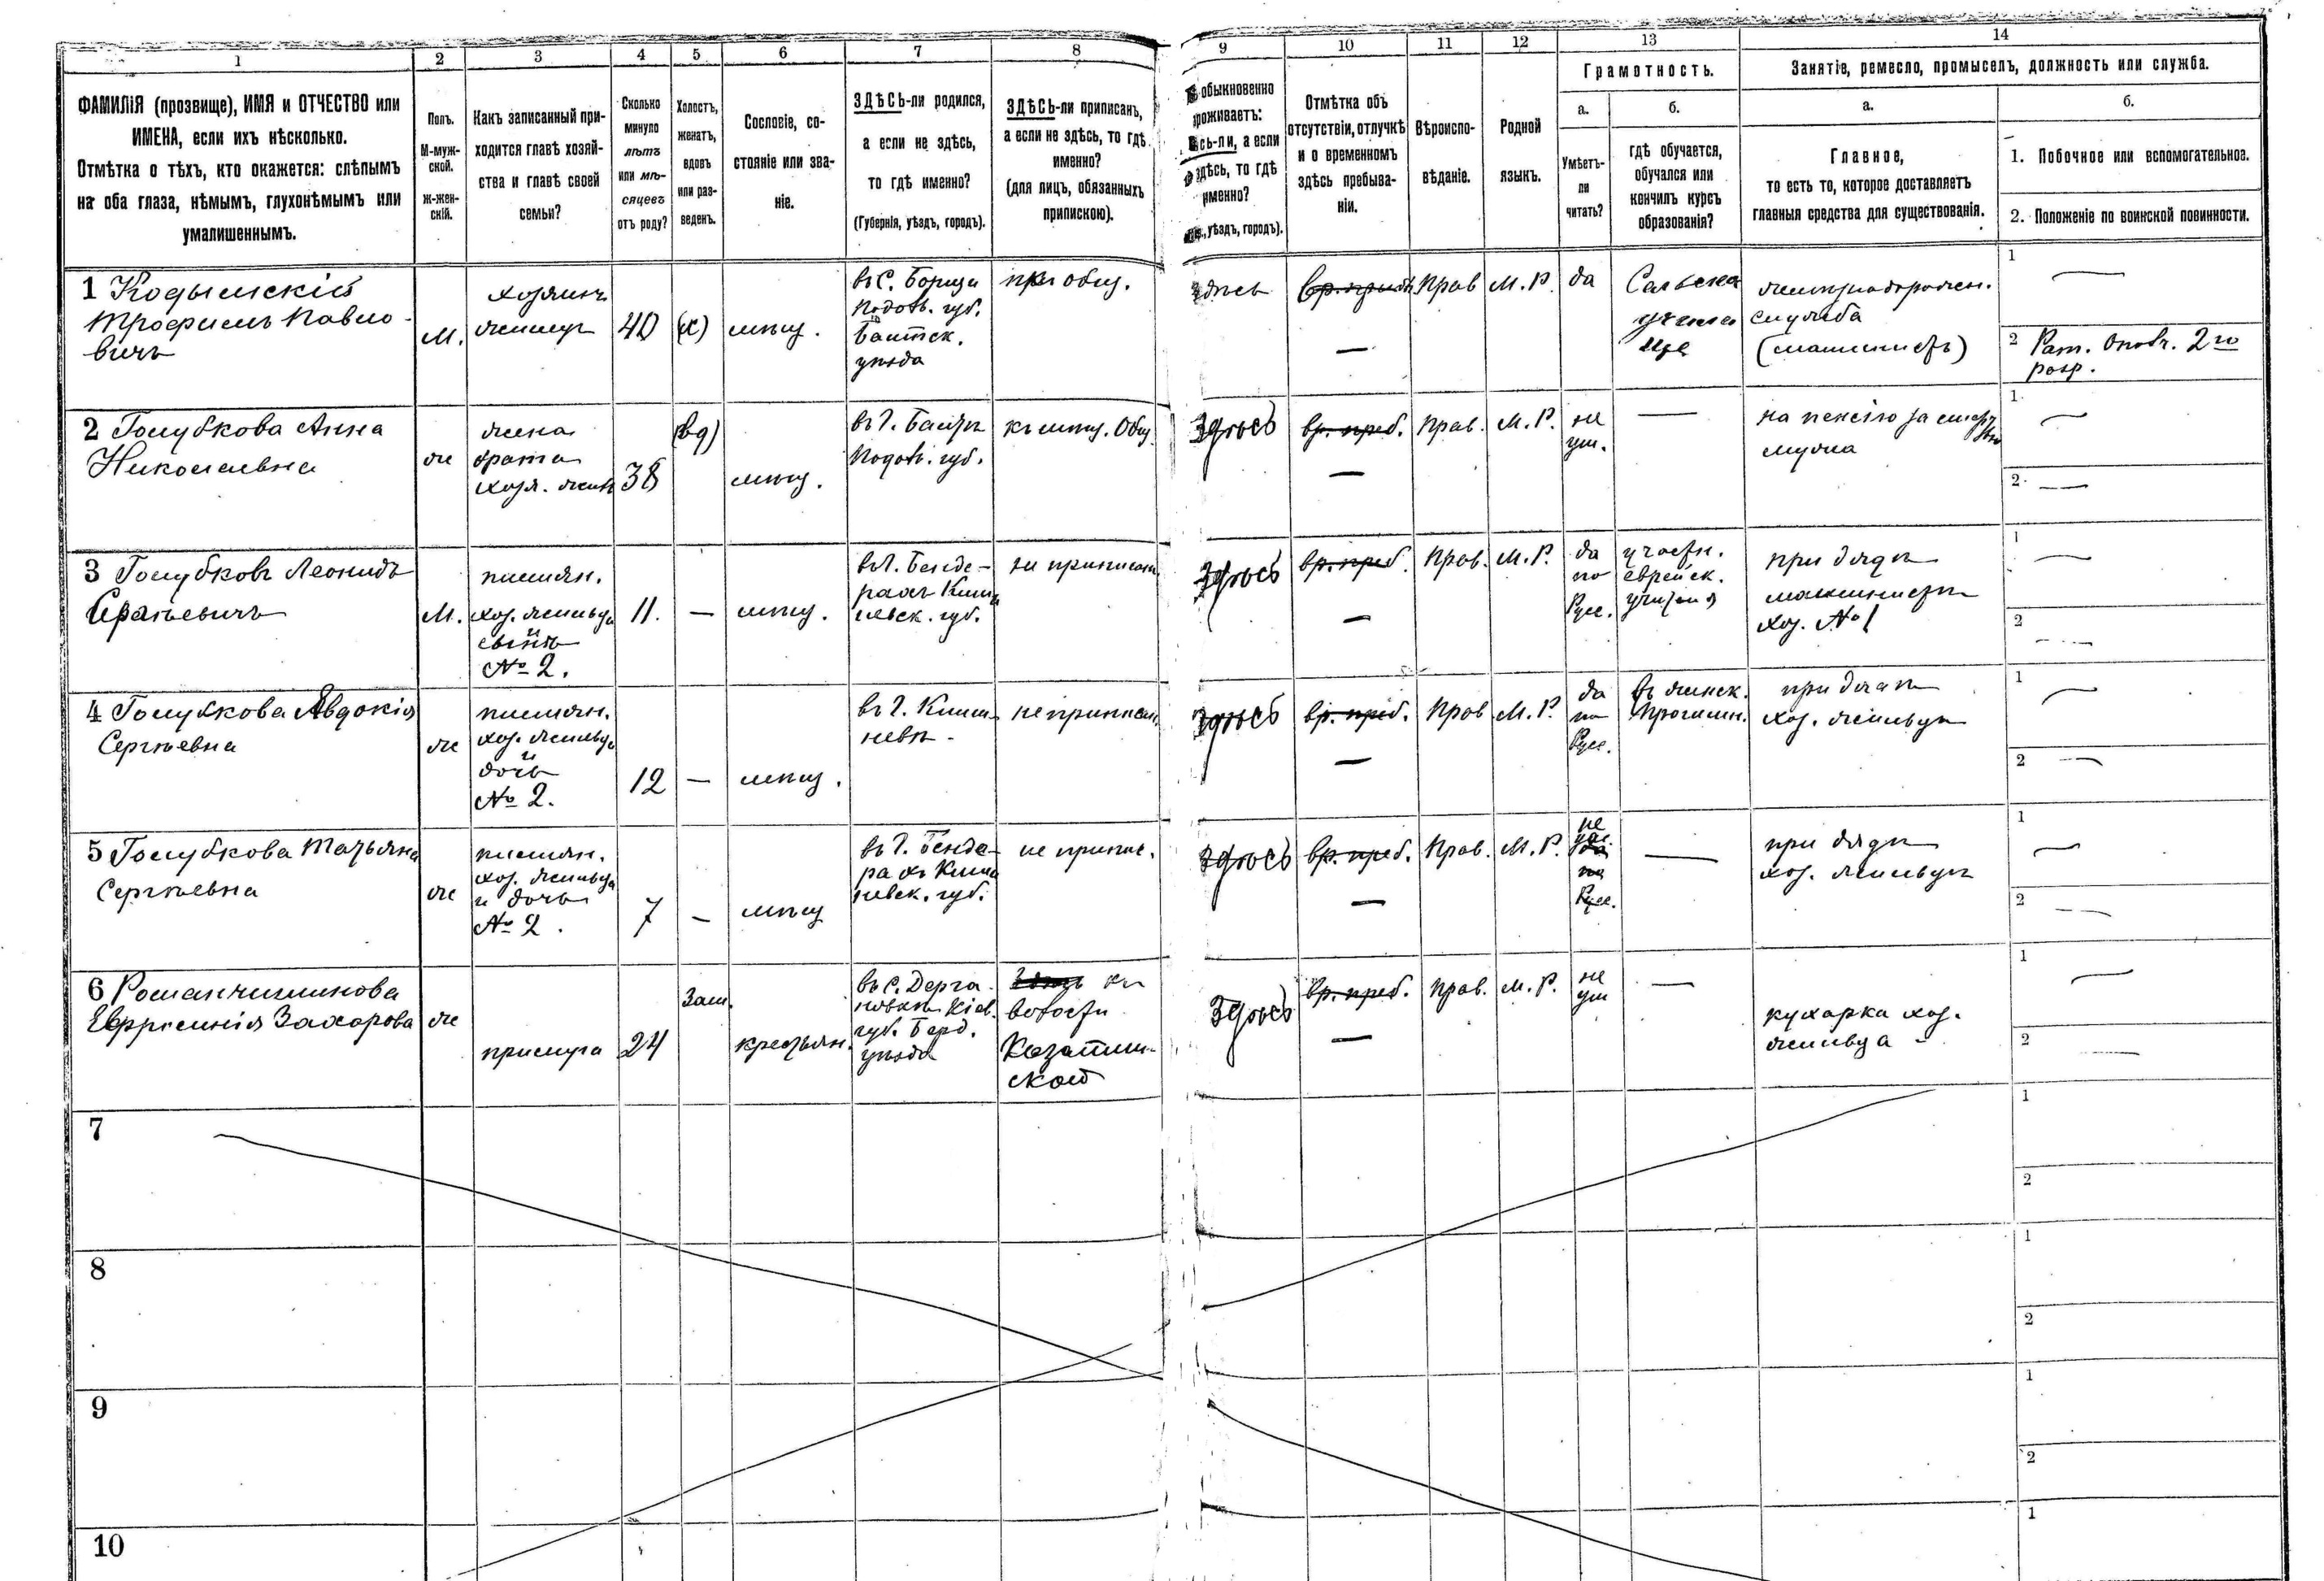 1 2 3 4 5 6 7 8 9 10 11 12 13 14
ФАМИЛІЯ (прозвище), ИМЯ и ОТЧЕСТВО или
ИМЕНА, если ихъ нѣсколько.
Отмѣтка о тѣхъ, кто окажется: слѣпымъ
на оба глаза, нѣмымъ, глухонѣмымъ или
умалишеннымъ.
Полъ.
М-муж-
ской.
Ж-жен-
скій.
Какъ записанный при-
ходится главѣ хозяй-
ства и главѣ своей
семьи?
Сколько
минуло
лѣтъ
или мѣ-
сяцевъ
отъ роду?
Холостъ,
женатъ,
вдовъ
или раз-
веденъ.
Сословіе, со-
стояніе или зва-
ніе.
ЗДѢСЬ-ли родился,
а если не здѣсь,
то гдѣ именно?
(Губернія, уѣздъ, городъ).
ЗДѢСЬ-ли приписанъ,
а если не здѣсь, то гдѣ
именно?
(для лицъ, обязанныхъ
припискою).
обыкновенно
проживаетъ:
здѣсь-ли, а если
не здѣсь, то гдѣ
именно?
уѣздъ, городъ).
Отмѣтка объ
отсутствіи, отлучкѣ
и о временномъ
здѣсь пребыва-
ніи.
Вѣроиспо-
вѣданіе.
Родной
языкъ.
Грамотность.
а.
Умѣетъ-
ли
читать?
б.
гдѣ обучается,
обучался или
кончилъ курсъ
образованія?
Занятіе, ремесло, промыселъ, должность или служба.
а.
Главное,
то есть то, которое доставляетъ
главныя средства для существованія.
б.
1. Побочное или вспомогательное.
2. Положеніе по воинской повинности.
1 Кодымскій
Трофимъ Павло-
вичъ
М.
хозяинъ
40
мѣщ.
въ с.
Подол. губ.
Балтск.
уѣзда
общ.
здѣсь
Прав
М. Р.
да
Сельско
училищѣ
желѣзнодорожн.
служба
(машинистъ)
1
2 Рат. Ополч. 2го
разр.
2 Голубкова Анна
Николаевна
ж
жена
брата
хоз. жены
38
(вд)
мѣщ.
въ г. Балтѣ
Подол. губ.
къ мѣщ. Общ.
Здѣсь
вр. преб.
Прав.
М. Р.
не
ум.
на пенсію за
мужа
1
2
3 Голубковъ Леонидъ
М.
племян.
хоз. жильца
сынъ
№ 2.
11.
мѣщ.
въ г. Бенде-
рахъ Киши
невск. губ.
не приписан
Здѣсь
вр. преб.
Прав.
М. Р.
да
по
Рус.
еврейск.
при дядѣ
машинистѣ
хоз. № 1
1
2
4 Голубкова Авдокія
Сергѣевна
ж
племян.
хоз. жильца
и
дочь
№ 2.
12
мѣщ.
въ г. Киши-
невѣ
не приписан
Здѣсь
вр. преб.
Прав
М. Р.
да
по
Рус.
въ женск.
Прогимн.
при дядѣ
хоз. жильцѣ
1
2
5 Голубкова Татьяна
Сергѣевна
ж
племян.
хоз. жильца
и дочь
№ 2.
7
мѣщ
въ г. Бенде-
рахъ Киши
невск. губ.
не припис.
Здѣсь
вр. преб.
Прав.
М. Р.
не
ум.
да
по
Рус.
при дядѣ
хоз. жильцѣ
1
2
6 Романчишинова
Евфросинія Захарова
ж
прислуга
24
Зам.
крестьян.
въ с. Дерга-
новкѣ Кіев.
губ. Берд.
уѣзда
къ
волости
Казатин-
ской
Здѣсь
вр. преб.
Прав.
М. Р.
не
ум
кухарка хоз.
жильца
1
2
7
1
2
8
1
2
9
1
2
10
1